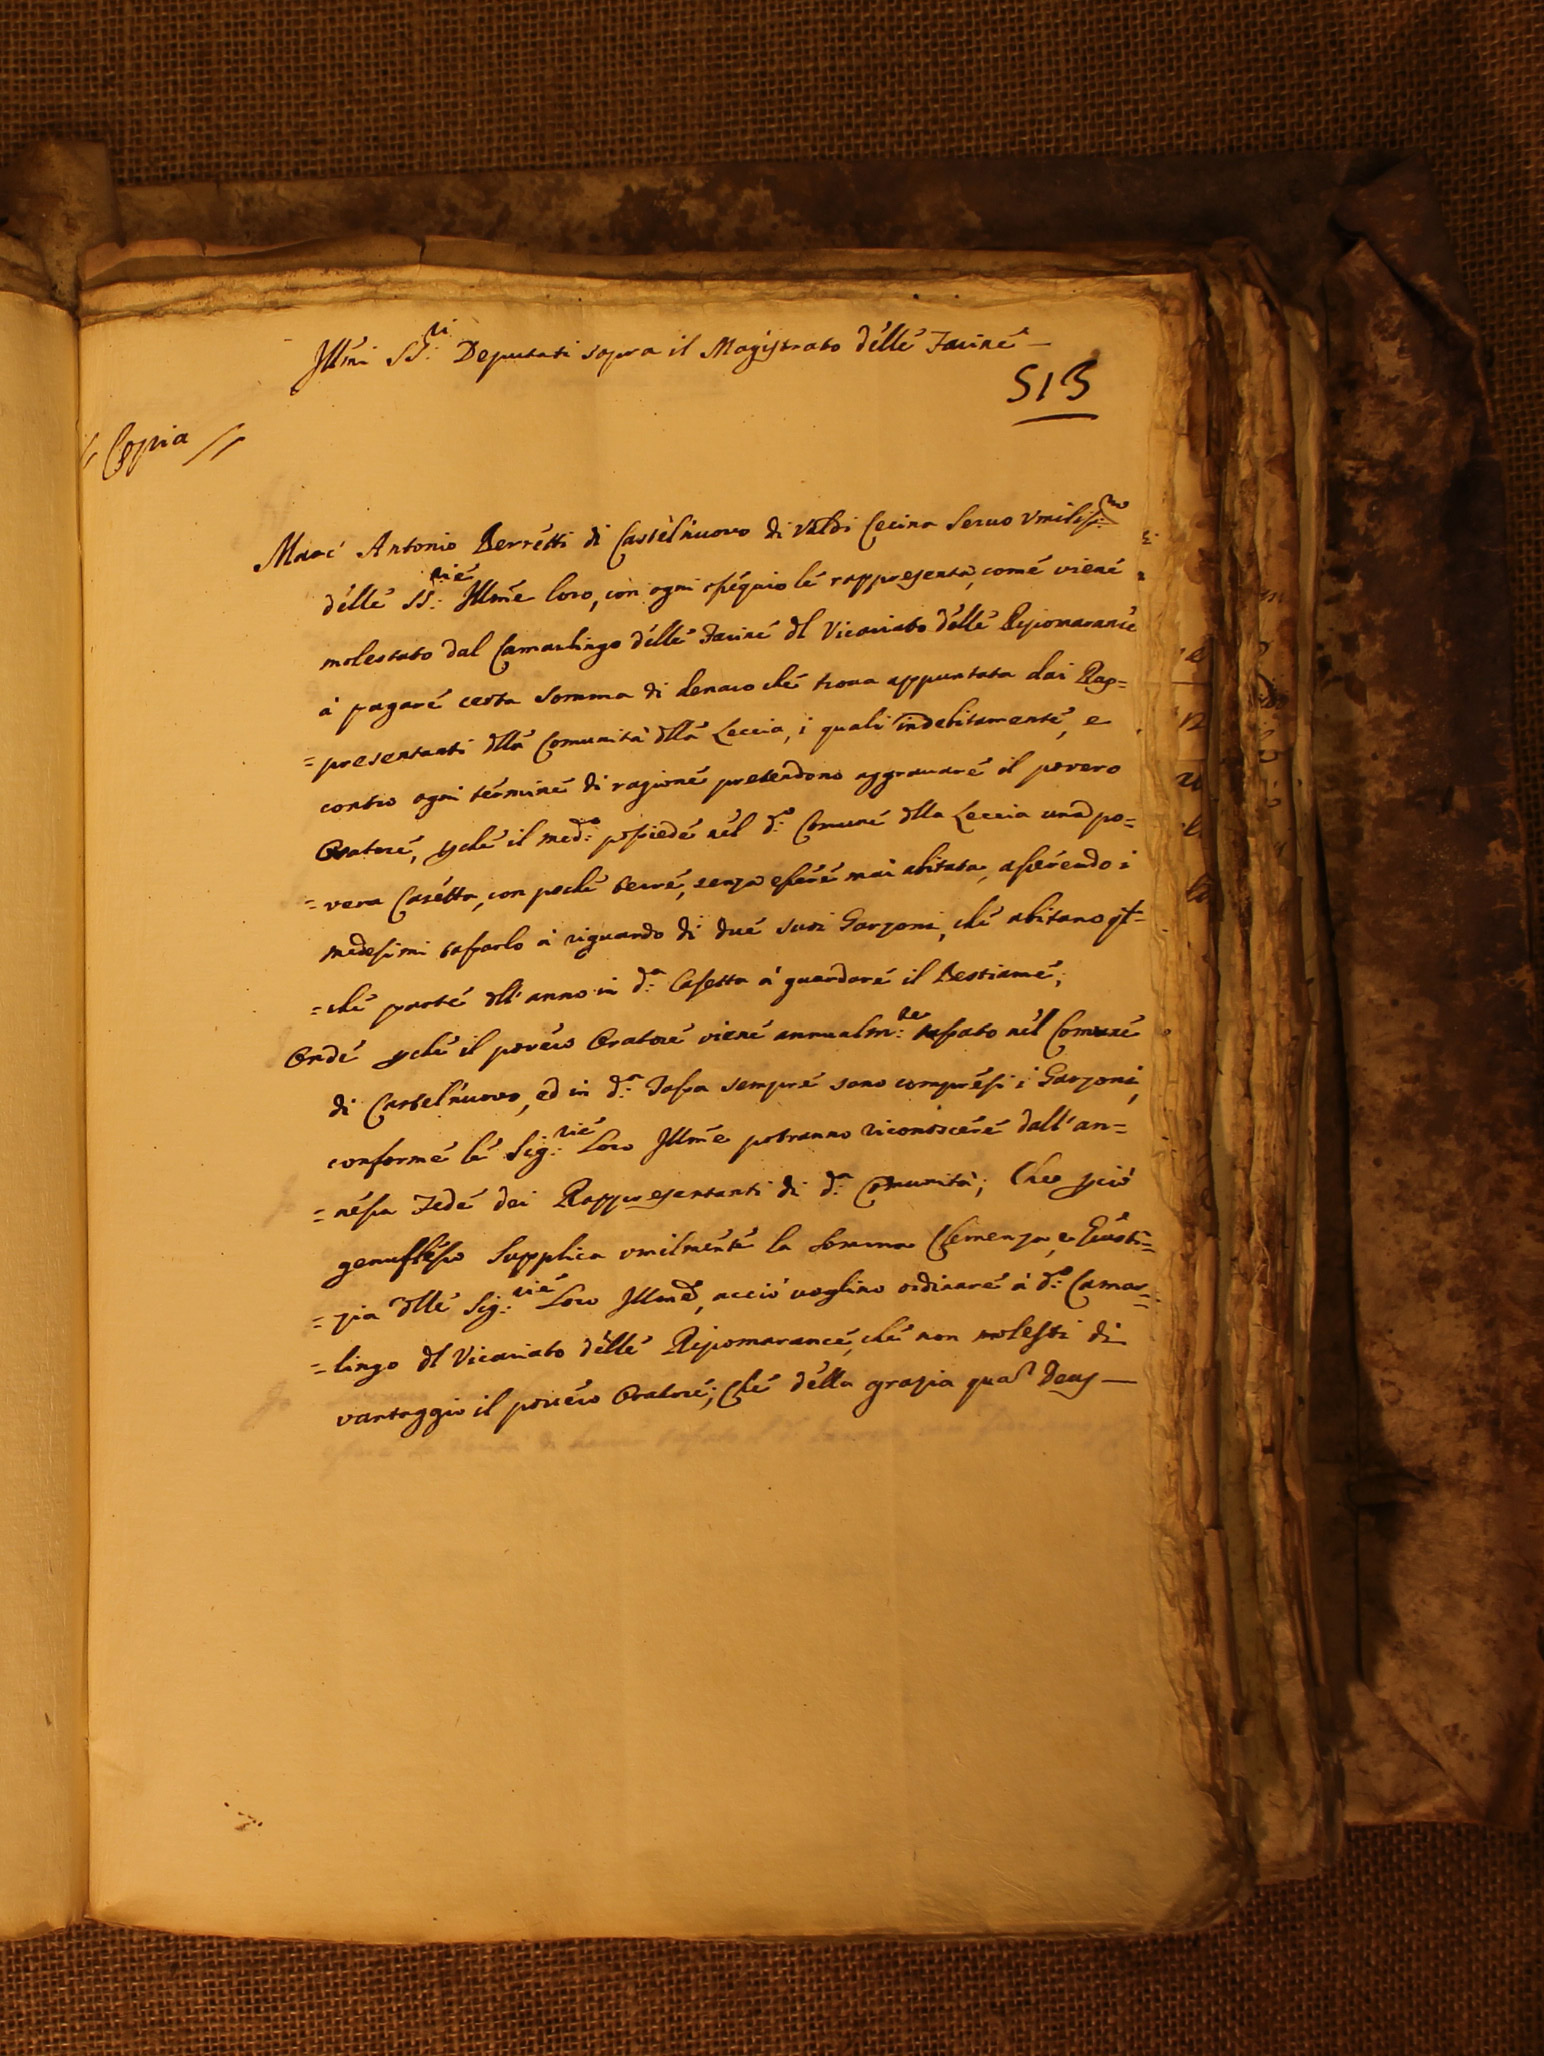 Jllmi SS:ri Deputati sopra il Magistrato delle Farine —
513
// Copia //
Marc' Antonio Berretti di Castelnuovo di Valdi Cecina Seruo Vmiliss:mo
delle SS:rie Jllme loro, con ogni ossequio le rappresenta, come viene
molestato dal Camarlingo delle Farine dl Vicariato delle Ripomarancie
à pagare certa somma di denaro che troua appuntata dai Rap=
=presentanti dlla Comunità dlla Leccia, i quali indebitamente, e
contro ogni termine di ragione pretendono aggrauare il povero
Oratore, pche il med:o possiede nel d:o Comune dlla Leccia una po=
=vera Casetta, con poche terre, senza essere mai abitata, asserendo i
medesimi tassarlo à riguardo di due suoi Garzoni, che abitano ql=
=che parte dll'anno in d:a Casetta à guardare il Bestiame;
Onde pche il povero Oratore viene annualm:te tassato nel Comune
di Castelnuovo, ed in d:a Tassa sempre sono compresi i Garzoni,
conforme le Sig:rie Loro Jllme potranno riconoscere dall'an=
=nessa Fede dei Rappresentanti di d:a Comunità; Che pciò
genuflesso Supplica vmilmente la somma Clemenza, e Giusti=
=zia dlle Sig:rie Loro Jllme, acciò voglino ordinare à d:o Camar=
=lingo dl Vicariato delle Ripomarance, che non molesti di
vantaggio il povero Oratore; Che della grazia qua Deus —